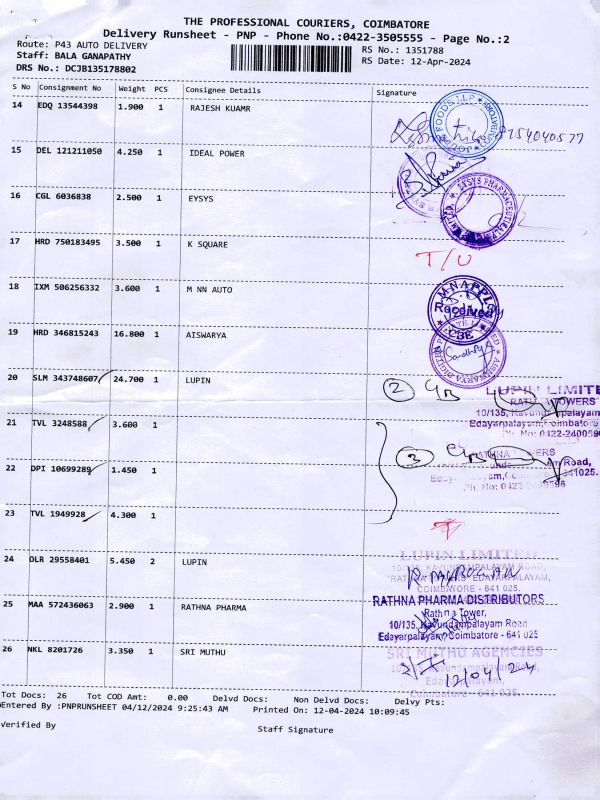 THE PROFESSIONAL COURIERS, COIMBATORE
Delivery Runsheet - PNP - Phone No.:0422-3505555 - Page No.:2
Route: P43 AUTO DELIVERY
Staff: BALA GANAPATHY
DRS No.: DCJB135178802
RS No.: 1351788
RS Date: 12-Apr-2024
S No Consignment No Weight PCS Consignee Details Signature
14 EDQ 13544398 1.900 1 RAJESH KUAMR
15 DEL 121211050 4.250 1 IDEAL POWER
16 CGL 6036838 2.500 1 EYSYS
17 HRD 750183495 3.500 1 K SQUARE T/U
18 IXM 506256332 3.600 1 M NN AUTO
Received
CBE
19 HRD 346815243 16.800 1 AISWARYA
20 SLM 343748607 24.700 1 LUPIN 2
LUPIN LIMITE
RATHNA TOWERS
10/135, Kavundampalayam
Edayarpalayam, Coimbatore
Ph. No: 0422-240059
21 TVL 3248588 3.600 1
22 DPI 10699289 1.450 1 3
RATHNA TOWERS
Road,
641025.
Ph. No: 0422-
23 TVL 1949928 4.300 1
24 DLR 29558401 5.450 2 LUPIN
LUPIN LIMITED
10/135, KAVUNDAMPALAYAM ROAD,
EDAYARPALAYAM,
COIMBATORE - 641 025
R. MURUGAN
25 MAA 572436063 2.900 1 RATHNA PHARMA
RATHNA PHARMA DISTRIBUTORS
Rathna Tower,
10/135, Kavundampalayam Road
Edayarpalayam, Coimbatore - 641 025
26 NKL 8201726 3.350 1 SRI MUTHU
SRI MUTHU AGENCIES
Kavundampalayam Road,
Edayarpalayam,
Coimbatore - 641 025.
12/04/24
Tot Docs: 26 Tot COD Amt: 0.00 Delvd Docs: Non Delvd Docs: Delvy Pts:
Entered By :PNPRUNSHEET 04/12/2024 9:25:43 AM Printed On: 12-04-2024 10:09:45
Verified By Staff Signature